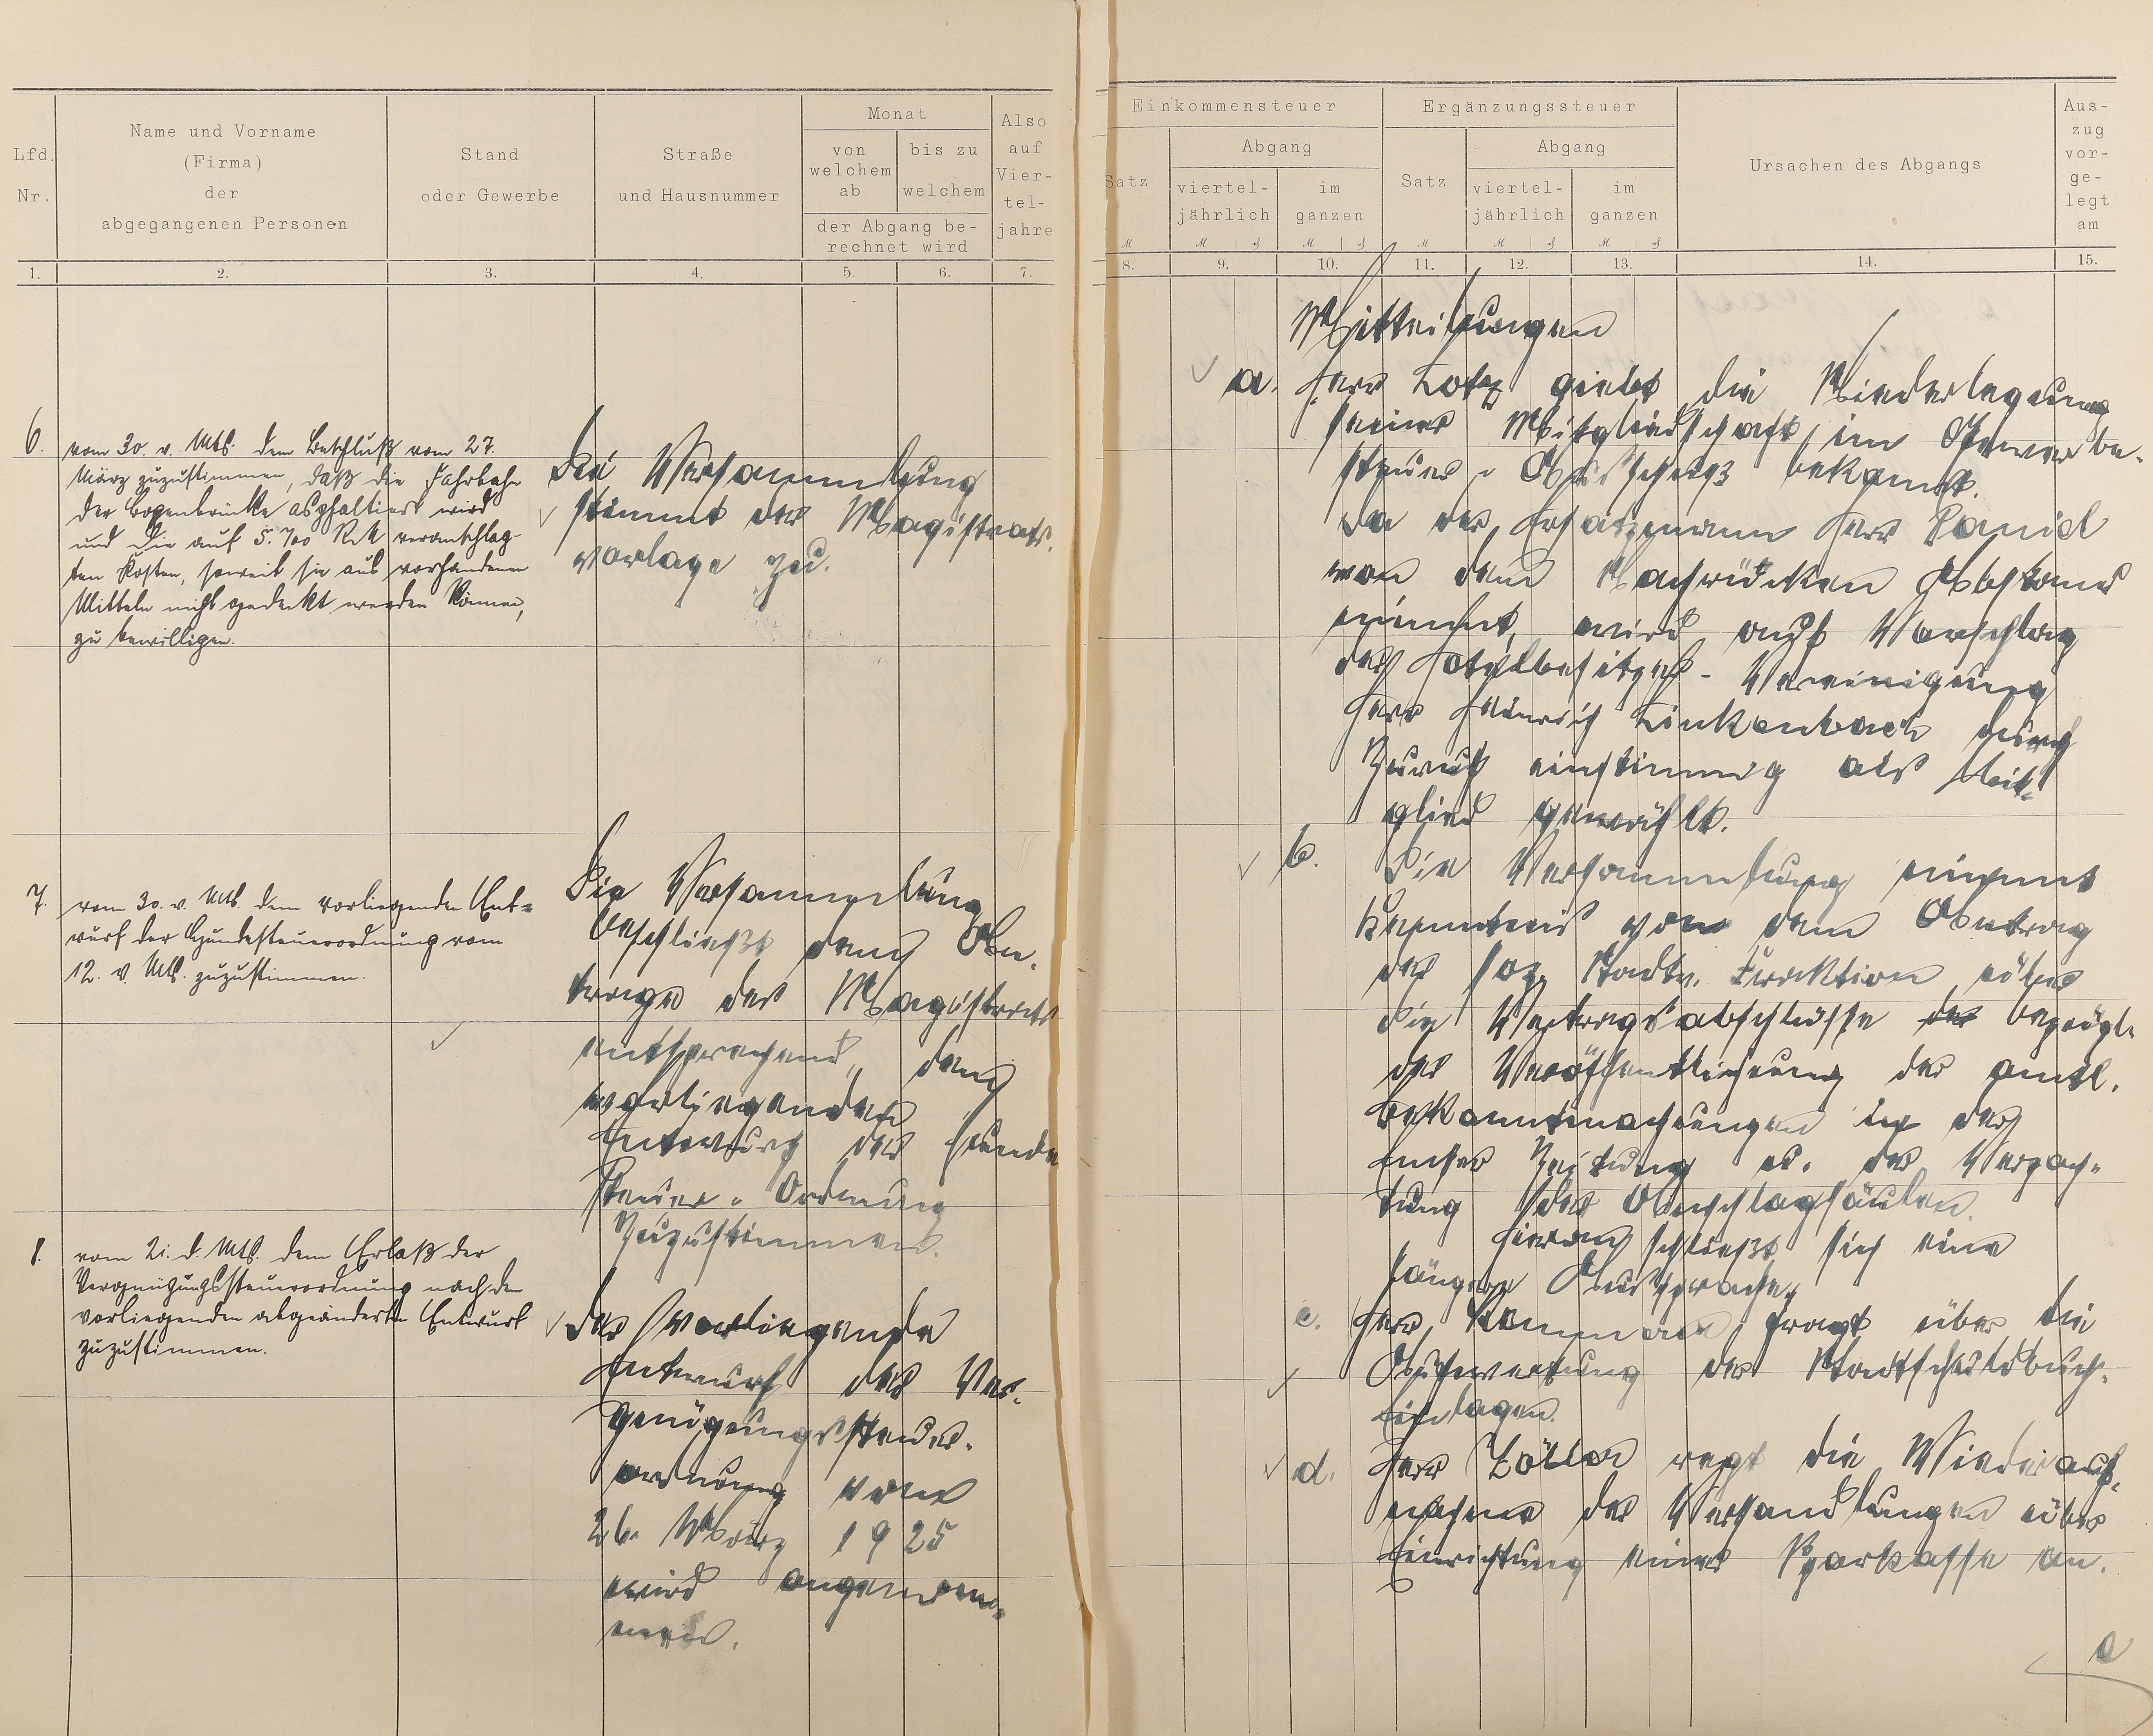 Lfd. Nr.
Name und Vorname
(Firma)
der
abgegangenen Personen
Stand
oder Gewerbe
Straße
und Hausnummer
Monat
von welchem ab
bis zu welchem
der Abgang be-
rechnet wird
Also
auf
Vier-
tel-
jahre
1. 2. 3. 4. 5. 6. 7.
6.
vom 30. v. Mts. dem Beschluß vom 27.
März zuzustimmen, daß die Fahrbahn
der Bogenbrücke asphaltiert wird
und die auf 5.700 RM veranschlag-
ten Kosten, soweit sie aus vorhandenen
Mitteln nicht gedeckt werden können,
zu bewilligen.
Die Versammlung
stimmt der Magistrats-
vorlage zu.
7.
vom 30. v. Mts. dem vorliegenden Ent-
wurf der Hundesteuerordnung vom
12. v. Mts. zuzustimmen.
Die Versammlung
beschließt dem An-
trage des Magistrats
entsprechend, dem
vorliegenden
Entwurf der Hunde
steuer-Ordnung
zuzustimmen.
8.
vom 2i. d. Mts. dem Erlaß der
Vergnügungssteuerordnung nach dem
vorliegenden abgeänderten Entwurf
zuzustimmen.
Der vorliegende
Entwurf der Ver-
gnügungssteuer-
ordnung vom
26. März 1925
wird angenom-
men.
Einkommensteuer
Satz
Abgang
viertel-
jährlich
im
ganzen
Ergänzungssteuer
Satz
Abgang
viertel-
jährlich
im
ganzen
Ursachen des Abgangs
Aus-
zug
vor-
ge-
legt
am
M M ₰ M ₰ M M ₰ M ₰
8. 9. 10. 11. 12. 13. 14. 15.
Mitteilungen
a. Herr Lotz giebt die Niederlegung
seiner Mitgliedschaft im
steuer-Ausschuß bekannt.
Da der Ersatzmann Herr Daniel
von dem Nachrücken Abstand
nimmt, wird auf Vorschlag
der Hotelbesitzer-Vereinigung
Herr Heinrich Linkenbach durch
Zuruf einstimmig als Mit-
glied gewählt.
b. Die Versammlung nimmt
Kenntnis von dem Antrag
der soz. Stadtv. Fraktion über
die Vertragsabschlüsse der bezügl.
der Veröffentlichung der amtl.
Bekanntmachungen in der
Emser Zeitung u. der Verpach-
tung der Anschlagsäulen.
Hieran schließt sich eine
längere Aussprache.
c. Herr fragt über die
Aufwertung der Stadtschuldbuch-
Einlagen.
d. Herr Zöller regt die Wiederauf-
nahme der Verhandlungen über
Einrichtung einer Sparkasse an.